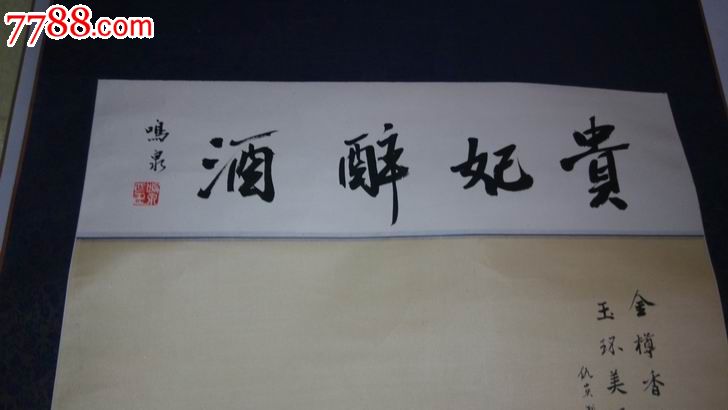 7788.com
貴妃醉酒
鳴泉
金樽香
玉环美
仇英